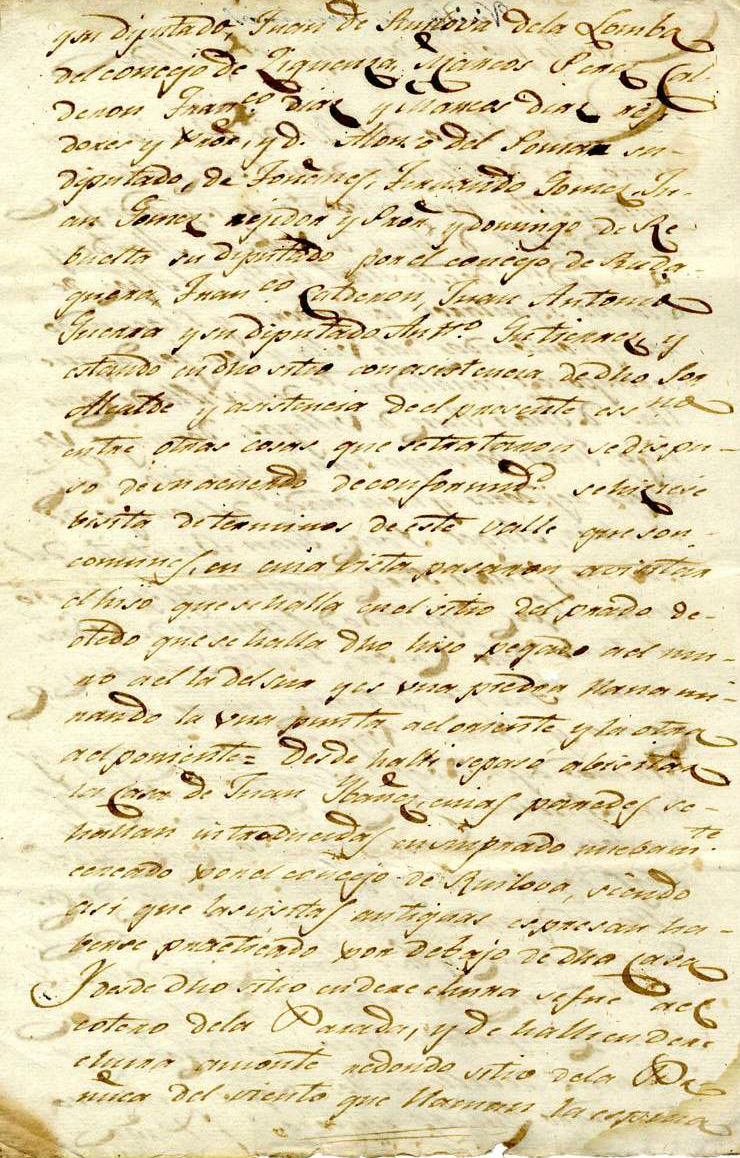 y su diputado, Juan de Ruilova dela Lomba
del concejo de Ziguenza, Marcos Perez Cal-
deron Fran.co diaz y Marcos diaz reji-
dores y Pror, y d. Alonso del Somar su
diputado, de Toñanes, Fernando Gomez, Ju-
an Gomez rejidor y Pror, y domingo de Re
buelta su diputado por el concejo de Ruda-
guera, Fran.co Calderon, Juan Antonio
Guerra y su diputado Antt.o Gutierrez, y
estando en dho sitio con asistencia de dho Sor
Alcalde y asistencia de el presente ess.no
entre otras cosas que se trataron se dispu-
so de su acuerdo de conformd.d se hiziese
bisita de terminos de este valle que son
comunes, en cuia vista pasaron a visitar
el hiso que se halla en el sitio del prado de
otedo que se halla dho hiso pegado a el mu-
ro a el la del sur y es vna piedra llana mi-
rando la vna punta a el oriente y la otra
a el poniente = desde halli se pasó a bisitar
la Casa de Juan Ybañez, cuias paredes se
hallan introducidas en su prado nuebam.te
cercado por el concejo de Ruilova, siendo
asi que las visitas antiguas espresan ha-
berse practicado por debajo de dha Casa
Y desde dho sitio en derechura se fue a el
cotero dela Parada, y de halli en dere
chura a monte redondo sitio dela Pe
ñuca del viento que llaman la espina